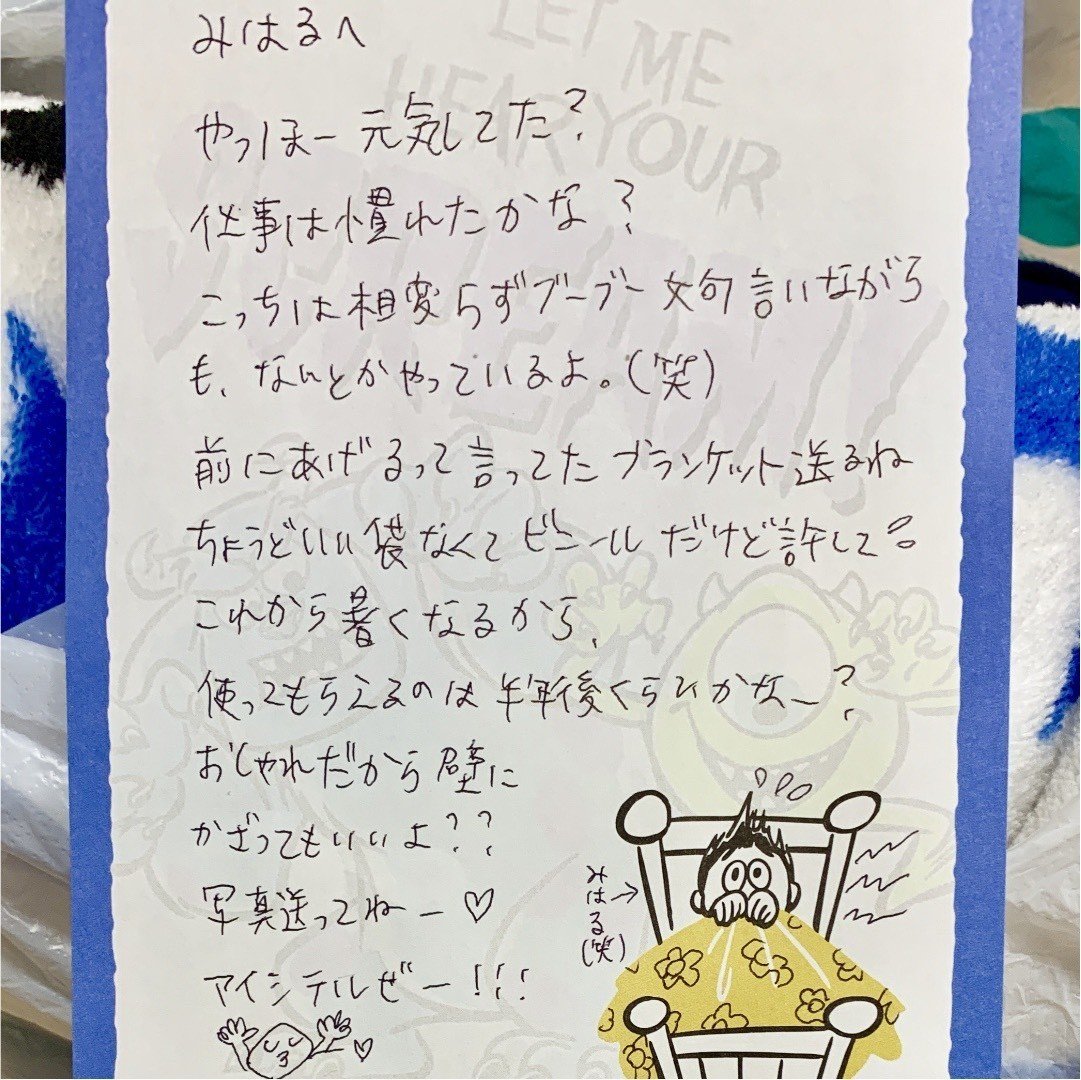 みはるへ
やっほー元気してた?
仕事は慣れたかな?
こっちは相変らずブーブー文句言いながら
も、なんとかやっているよ。(笑)
前にあげるって言ってたブランケット送るね
ちょうどいい袋なくてビニールだけど許して
これから暑くなるから、
使ってもらえるのは半年後くらいかなー?
おしゃれだから壁に
かざってもいいよ??
写真送ってねー♡
アイシテルぜー!!!
みはる(笑)
LET ME
HEAR YOUR